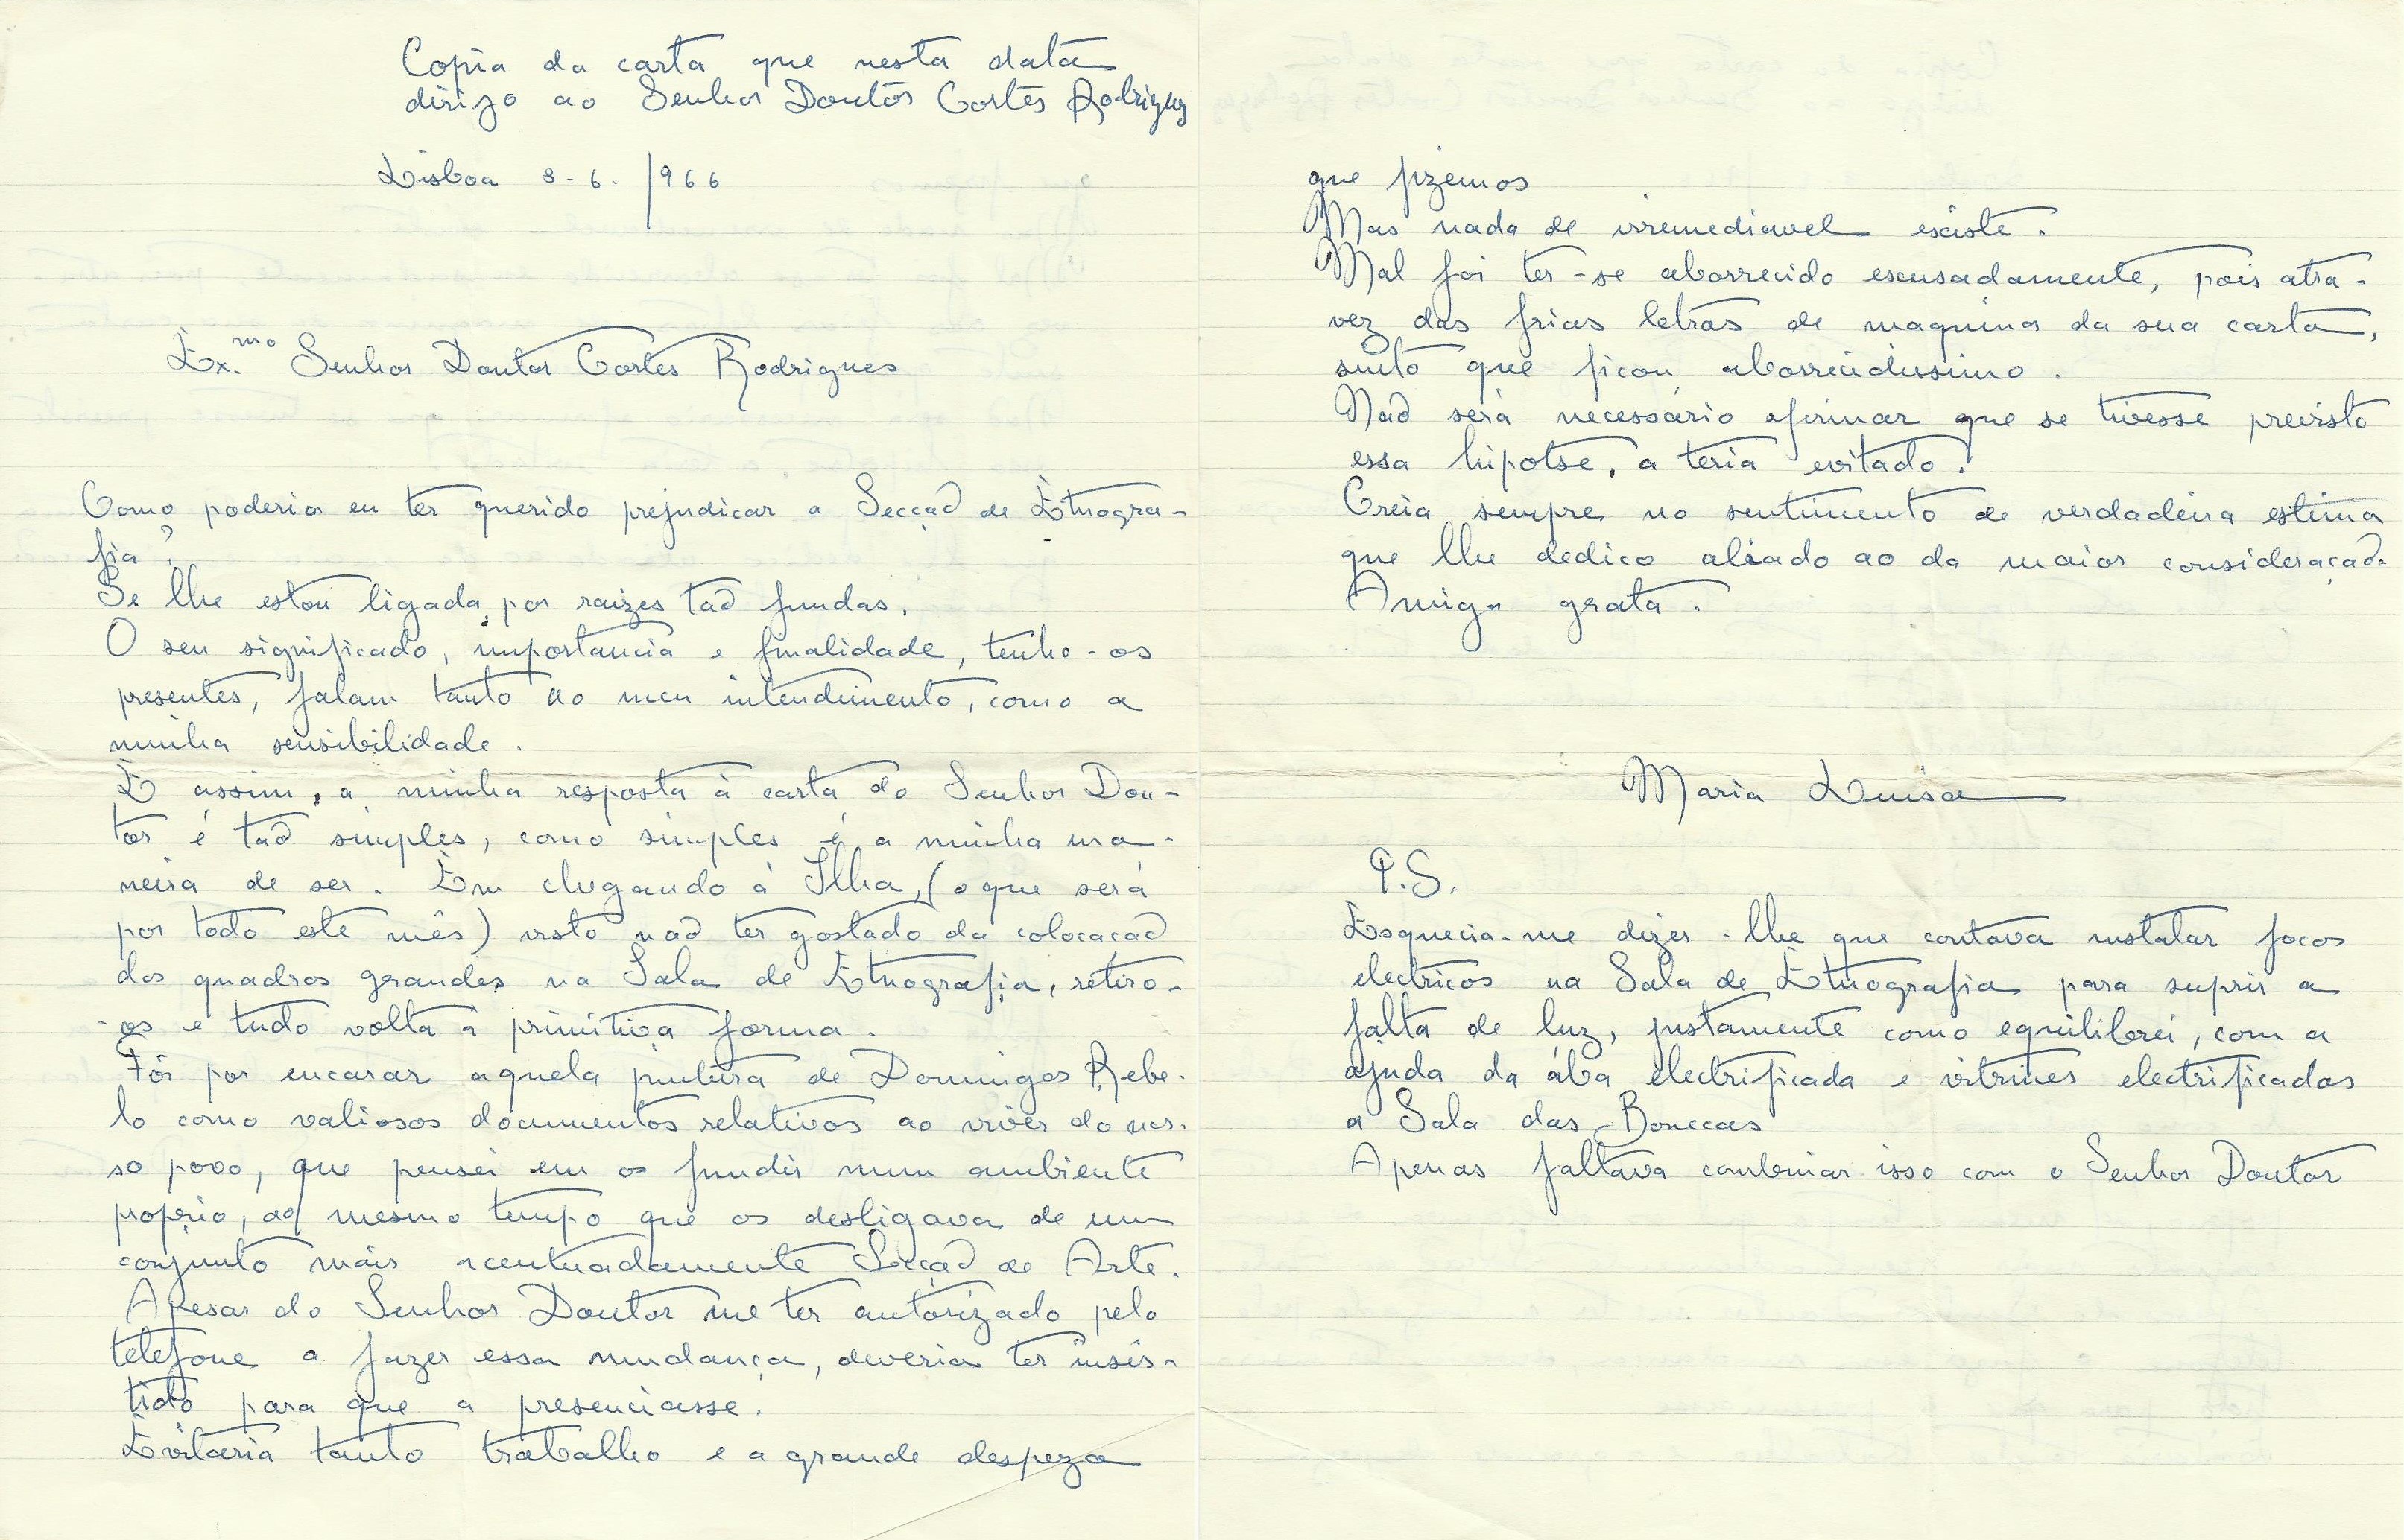 Copia da carta que nesta data
dirijo ao Senhor Doutor Cortes Rodrigues
Lisboa 8-6-1966
Ex.mo Senhor Doutor Cortes Rodrigues
Como poderia eu ter querido prejudicar a Secçaõ de Etnogra-
fia?
Se lhe estou ligada, por raizes taõ fundas.
O seu significado, importancia e finalidade, tenho-os
presentes, falam tanto ao meu intendimento, como a
minha sensibilidade.
E assim, a minha resposta à carta do Senhor Dou-
tor é taõ simples, como simples é a minha ma-
neira de ser. Em chegando à Ilha, (o que será
por todo este mês) visto naõ ter gostado da colocaçaõ
dos quadros grandes na Sala de Etnografia, retiro-
-os e tudo volta à primitiva forma.
Foi por encarar aquela pintura de Domingos Rebe-
lo como valiosos documentos relativos ao viver do nos-
so povo, que pensei em os fundir num ambiente
proprio, ao mesmo tempo que os desligava de um
conjunto mais acentuadamente Secçaõ de Arte.
Apesar do Senhor Doutor me ter autorizado pelo
telefone a fazer essa mudança, deveria ter insis-
tido para que a presenciasse.
Evitaria tanto trabalho e a grande despeza
que fizemos
Mas nada de irremediavel existe.
Mal foi ter-se aborrecido escusadamente, pois atra-
vez das frias letras de maquina da sua carta,
sinto que ficou aborrecidissimo.
Naõ será necessário afirmar que se tivesse previsto
essa hipotse, a teria evitado.
Creia sempre no sentimento de verdadeira estima
que lhe dedico aliado ao da maior consideraçaõ.
Amiga grata.
Maria Luisa
P.S.
Esquecia-me dizer-lhe que contava instalar focos
electricos na Sala de Etnografia para suprir a
falta de luz, justamente como equilibrei, com a
ajuda da ába electrificada e vitrines electrificadas
a Sala das Bonecas
Apenas faltava combinar isso com o Senhor Doutor